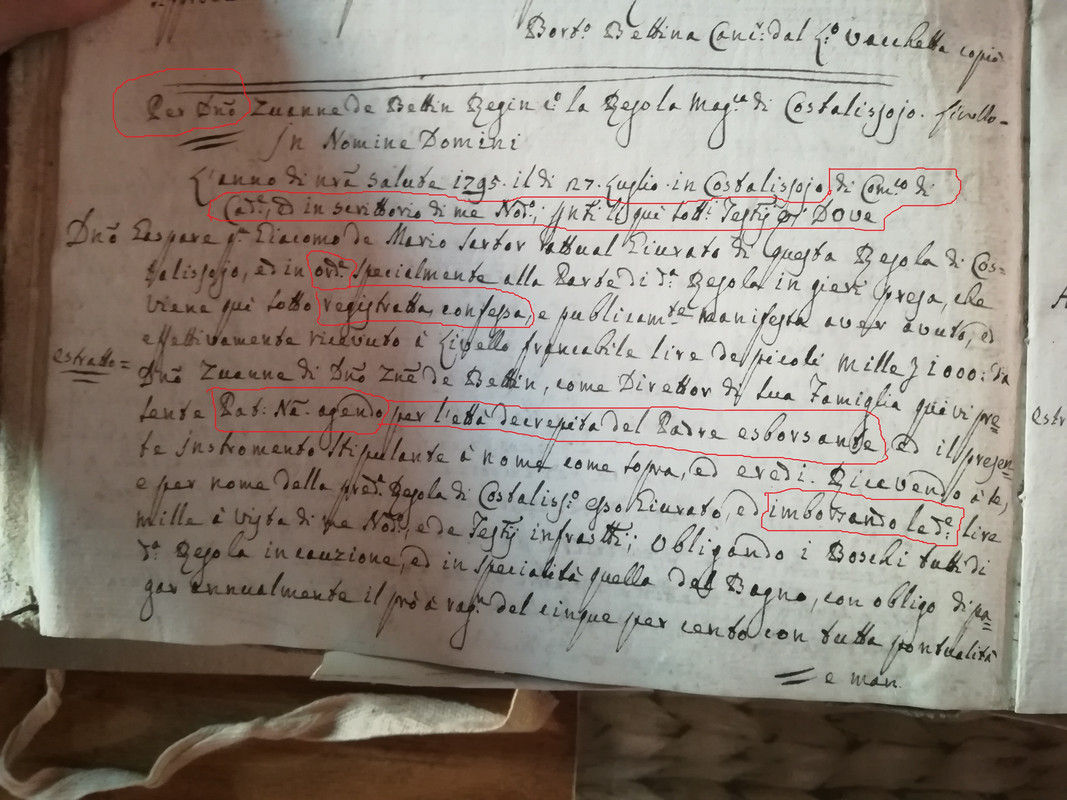 Bort.o Bettina Canc.r dal L.o vacchetta copiò
Per Dnõ Zuanne de Bettin Regin c.o la Regola Mag.ca di Costalissojo. Livello.
Jn Nomine Domini
L'anno di nrã Salute 1795. il di 27. Luglio in Costalissojo di Com.co di
Cad.e, ed in scrittorio di me Nod.o, pnti li qui sott.i Testij, Dove
Dnõ Gaspare q.m Giacomo de Mario Sartor l'attual Giurato di questa Regola di Cos=
talissojo, ed in ord.e specialmente alla Parte di d.a Regola in gieri presa, che
viene qui sotto registratta, confessa, e publicam.te manifesta aver avuto, ed
effettivamente ricevuto à Livello francabile lire de piccoli mille 1000: da
estratto=
Dnõ Zuanne di Dnõ Znẽ de Bettin, come Direttor di sua Famiglia quivi pre=
sente Pat: Nẽ. agendo per l'ettà decrepita del Padre esborsante, ed il presen=
te Instromento stipulante à nome come sopra, ed eredi. Ricevendo à se,
e per nome della pred.a Regola di Costaliss.o esso Giurato, ed imborsando le d.e lire
mille à vista di me Nod.o, e de Testij infrastti; Obligando i Boschi tutti di
d.a Regola in cauzione, ed in specialità quello del Bagno, con obligo di pa=
gar annualmente il prò à rag.n del cinque per cento con tutta pontualità
e man.
estr